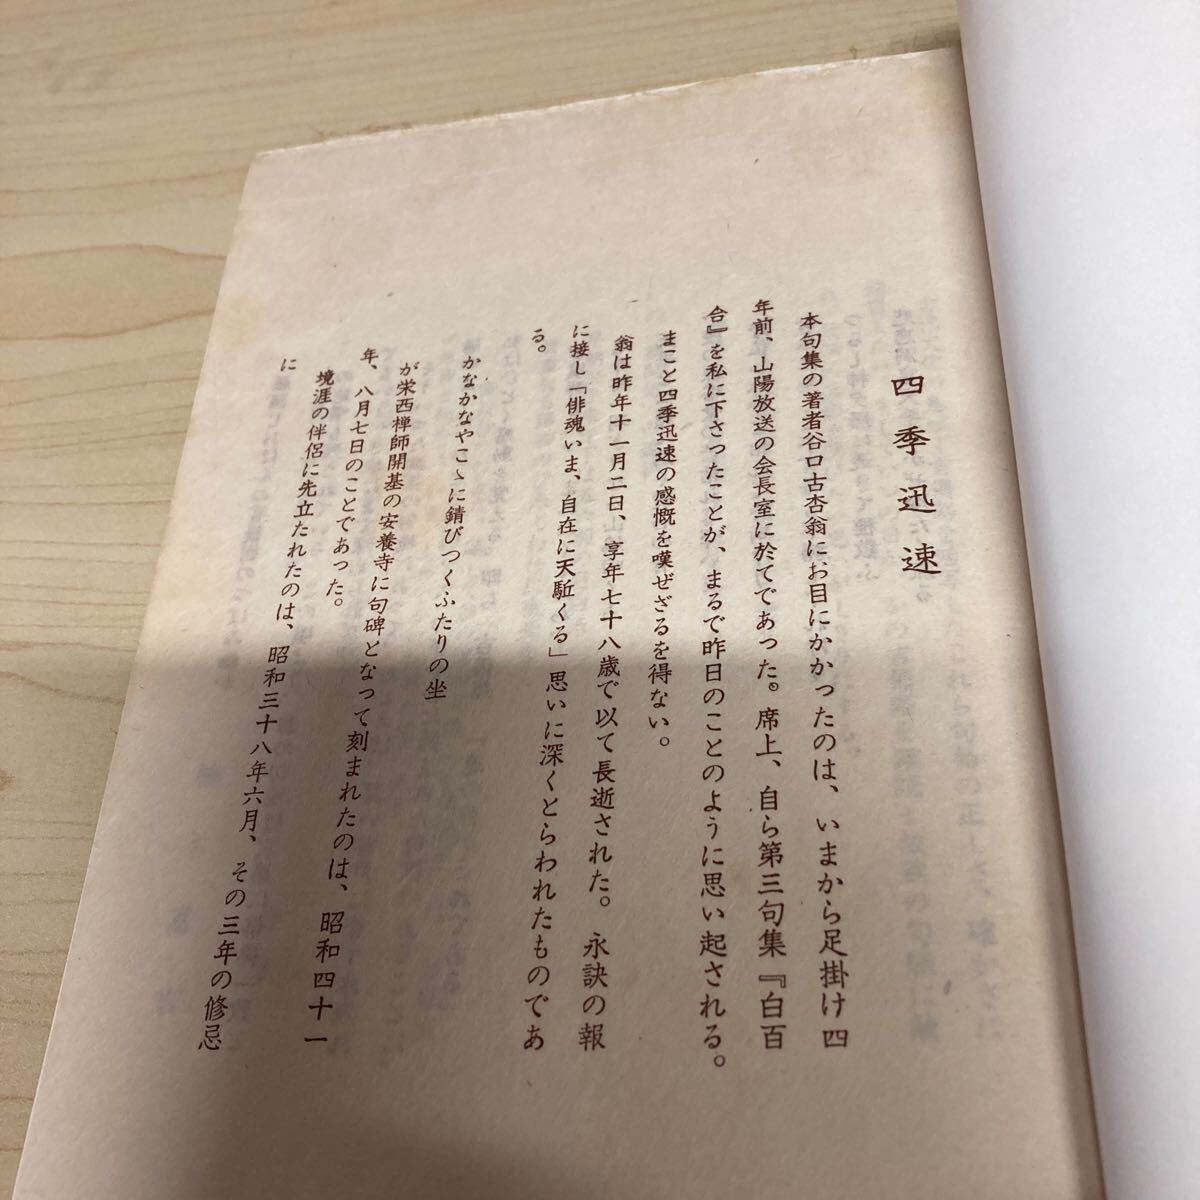 四季迅速
本句集の著者谷口古杏翁にお目にかかったのは、いまから足掛け四
年前、山陽放送の会長室に於てであった。席上、自ら第三句集『白百
合』を私に下さったことが、まるで昨日のことのように思い起される。
まこと四季迅速の感慨を嘆ぜざるを得ない。
翁は昨年十一月二日、享年七十八歳で以て長逝された。永訣の報
に接し「俳魂いま、自在に天駈くる」思いに深くとらわれたものであ
る。
かなかなやこゝに錆びつくふたりの坐
が栄西禅師開基の安養寺に句碑となって刻まれたのは、昭和四十一
年、八月七日のことであった。
境涯の伴侶に先立たれたのは、昭和三十八年六月、その三年の修忌
に